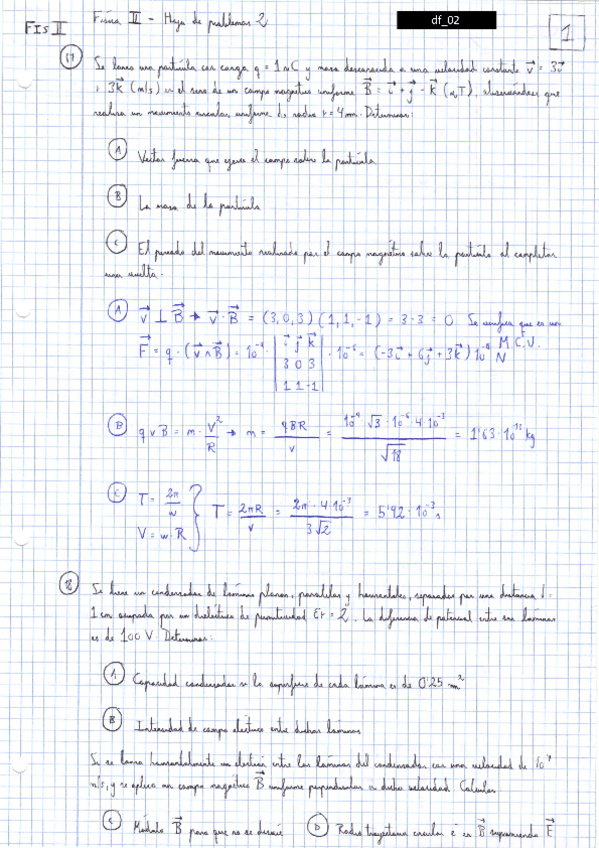 df_02
FIS II
Física II - Hoja de problemas 2
1
17 Se lanza una partícula con carga q = 1 nC y masa desconocida a una velocidad constante v⃗ = 3i⃗
+ 3k⃗ (m/s) en el seno de un campo magnético uniforme B⃗ = i⃗ + j⃗ - k⃗ (μT), observándose que
realiza un movimiento circular uniforme de radio r = 4 mm. Determinar:
A Vector fuerza que ejerce el campo sobre la partícula
B La masa de la partícula
C El periodo del movimiento realizado por el campo magnético sobre la partícula al completar
una vuelta.
A v⃗ ⊥ B⃗ → v⃗ · B⃗ = (3,0,3)(1,1,-1) = 3-3 = 0 Se verifica que es un
M.C.U.
F⃗ = q · (v⃗ ∧ B⃗) = 10⁻⁹ · | i⃗ j⃗ k⃗ | · 10⁻⁶ = (-3i⃗ + 6j⃗ + 3k⃗) N
3 0 3
1 1 -1
B q v B = m · V²/R → m = qBR/v = 10⁻⁹ √3 · 10⁻⁶ · 4 · 10⁻³/√18 = 1'63 · kg
C T = 2π/w
V = w · R } T = 2πR/v = 2π · 4 · 10⁻³/3√2 = 5'92 · 10⁻³ s
18 Se tiene un condensador de láminas planas, paralelas y horizontales, separadas por una distancia d =
1 cm ocupada por un dieléctrico de permitividad Er = 2. La diferencia de potencial entre sus láminas
es de 100 V Determinar:
A Capacidad condensador si la superficie de cada lámina es de 0'25 m²
B Intensidad de campo eléctrico entre dichas láminas
Si se lanza horizontalmente un electrón entre las láminas del condensador con una velocidad de
m/s, y se aplica un campo magnético B⃗ uniforme perpendicular a dicha velocidad Calcular
C Módulo B⃗ para que no se desvíe D Radio trayectoria circular e⁻ en B⃗ suprimiendo E⃗